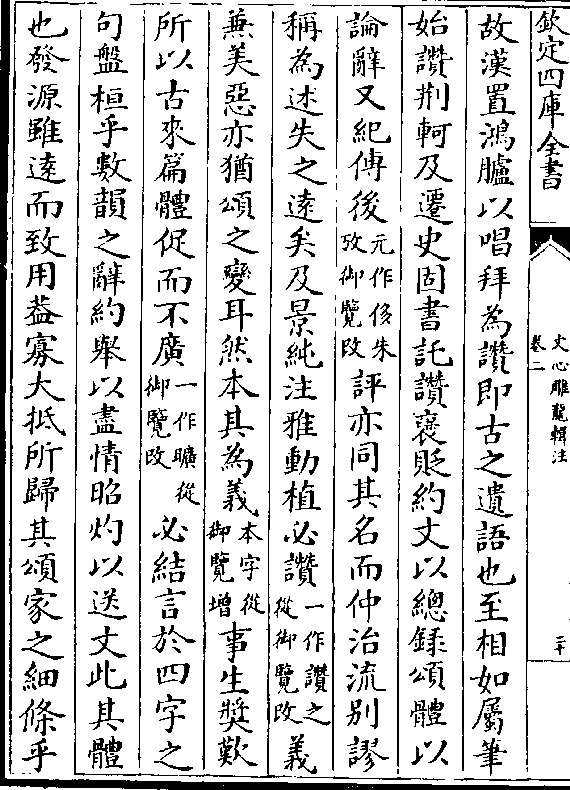 欽定四庫全書
文心雕龍輯注
卷二
二十
故漢置鴻臚以唱拜為讚即古之遺語也至相如屬筆
始讚荆軻及遷史固書託讚襃貶約文以總錄頌體以
論辭又紀傳後元作侈朱攷御覽改評亦同其名而仲治流别謬
稱為述失之逺矣及景純注雅動植必讚一作讚之從御覽改義
兼美惡亦猶頌之變耳然本其為義本字從御覽增事生奬歎
所以古來篇體促而不廣一作曠從御覽改必結言於四字之
句盤桓乎數韻之辭約舉以盡情昭灼以送文此其體
也發源雖逺而致用葢寡大抵所歸其頌家之細條乎